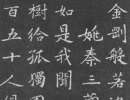 金剛般若
姚秦三
如是我聞
樹給孤獨
百五十人